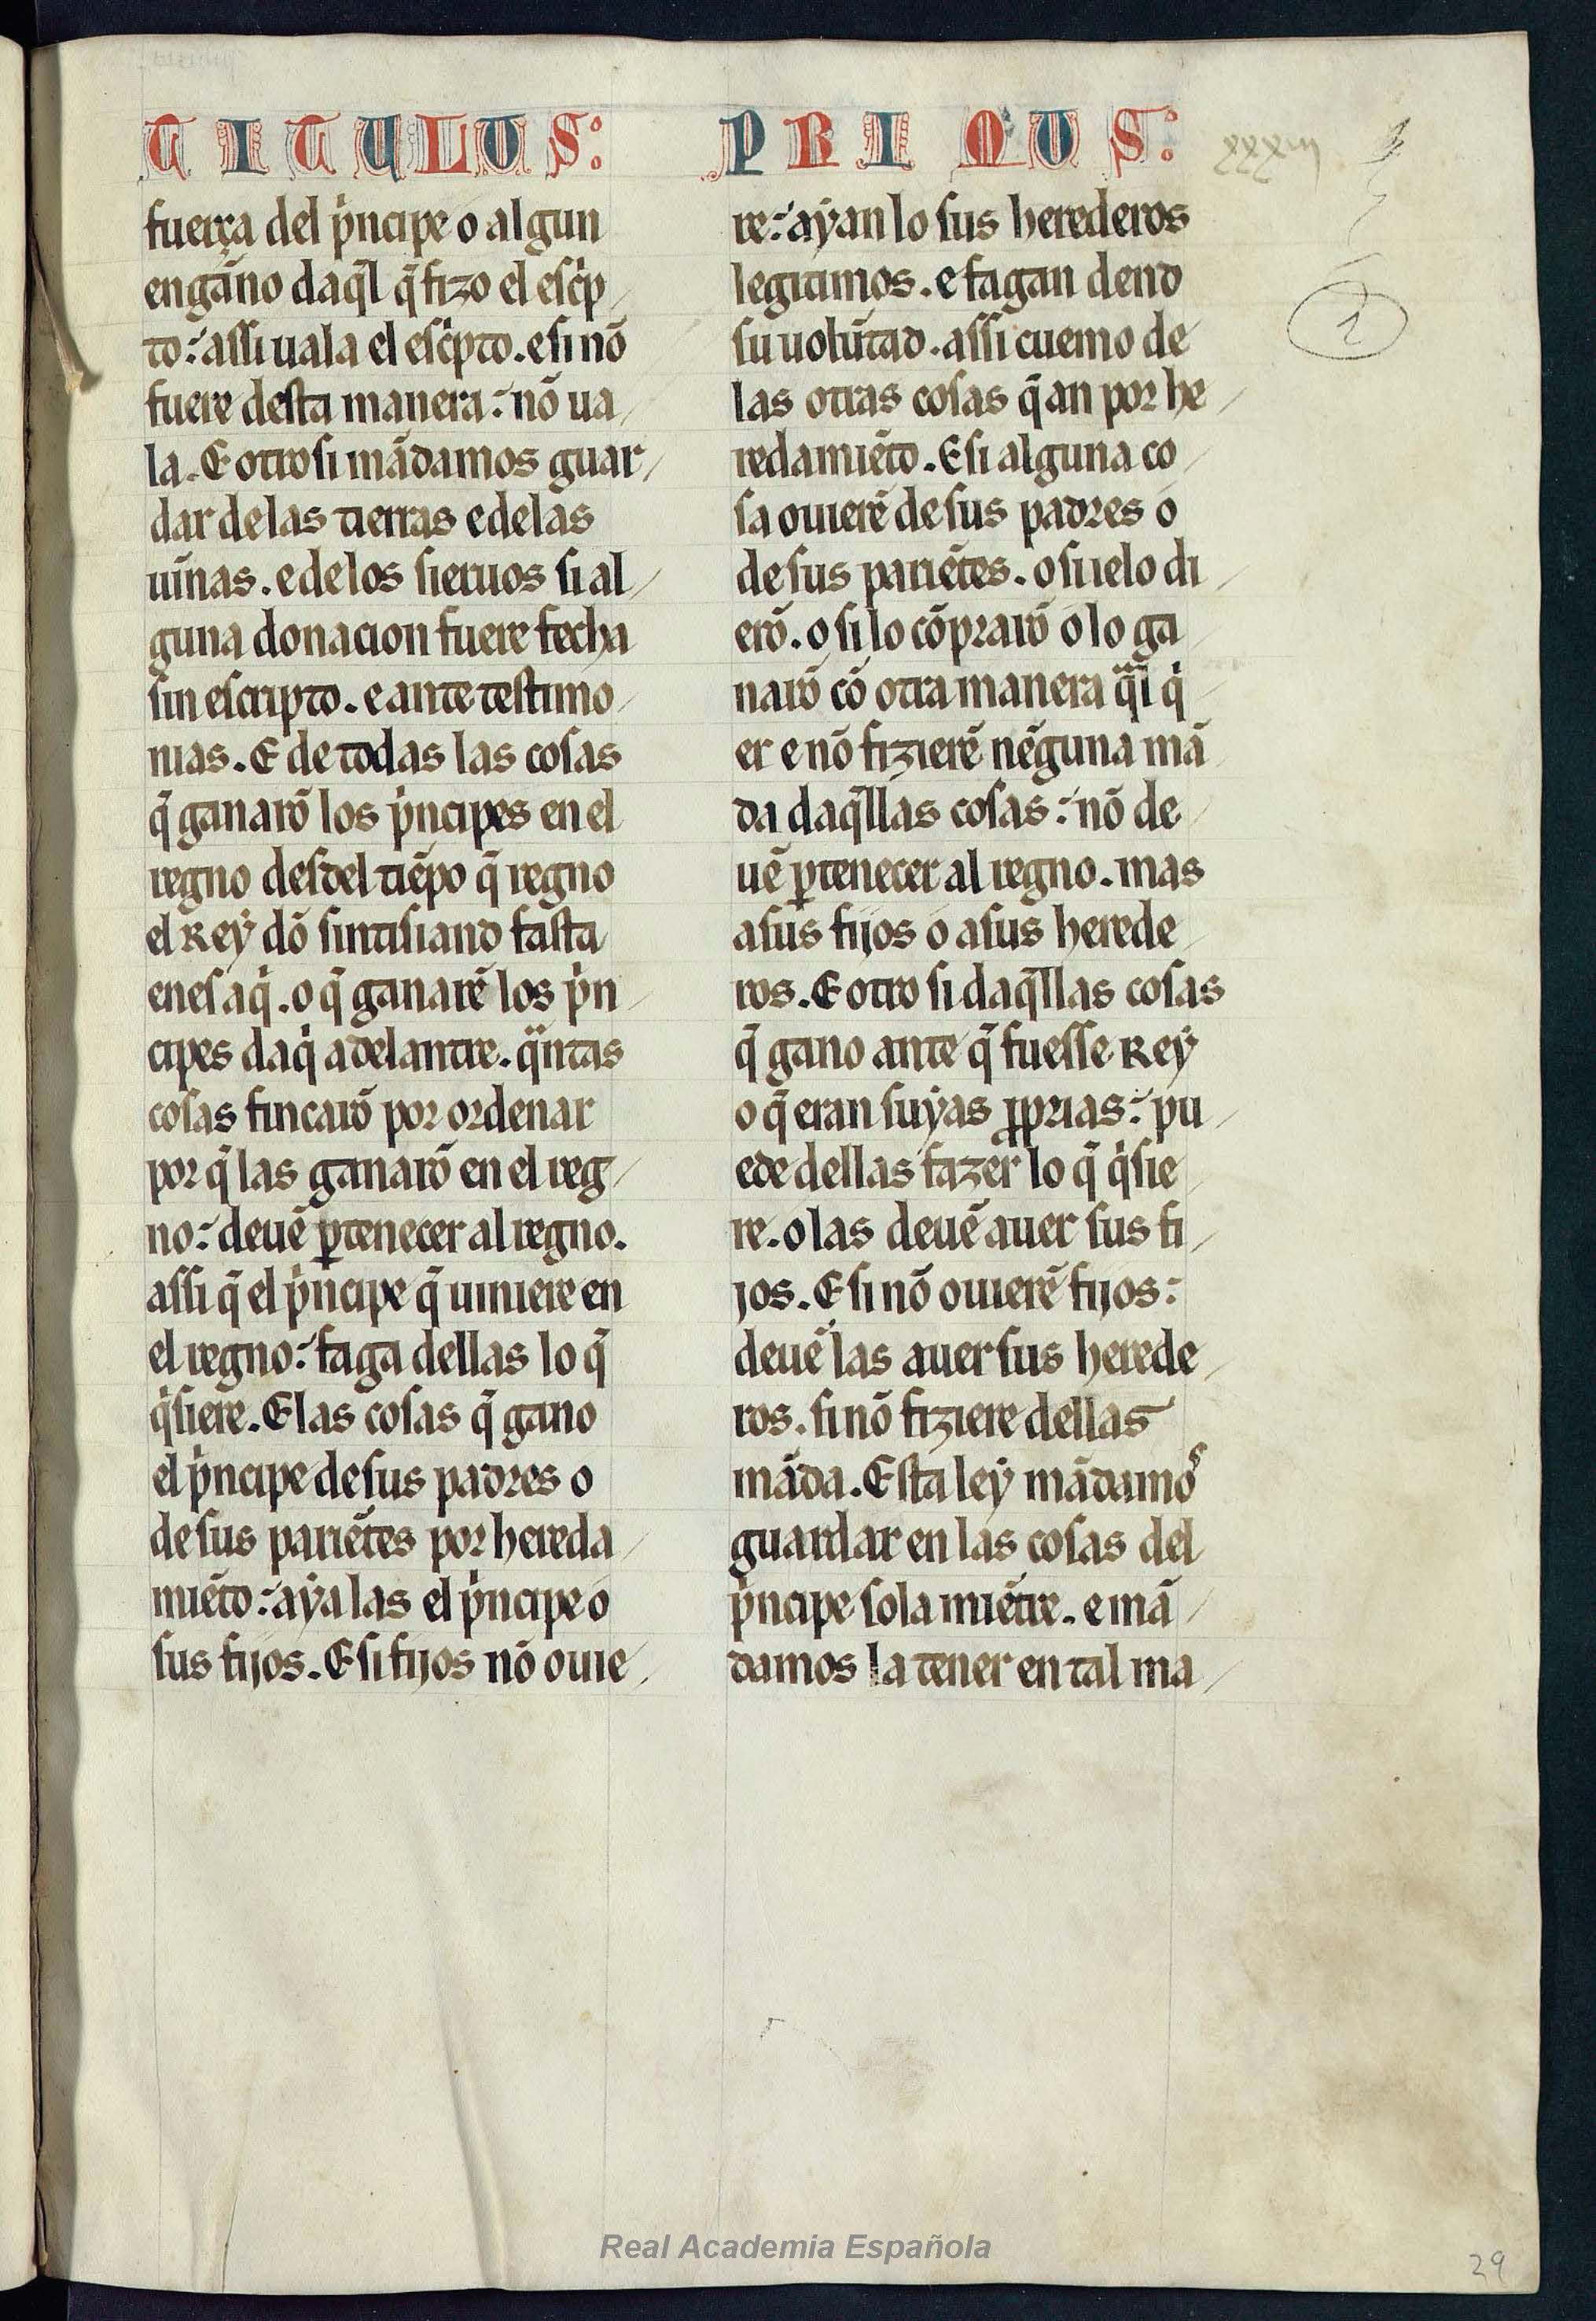 TITULUS: PRIMUS:
xxxiii
fuerça del pͥncipe o algun
engan̄o daq̄l q̄ fizo el esc̄p
to: assi uala el esc̄pto. e si nõ
fuere desta manera: nõ ua
la. E otrosi mãdamos guar
dar delas tierras e delas
uin̄as. e delos sieruos si al
guna donacion fuere fecha
sin escripto. e ante testimo
nias. E de todas las cosas
q̄ ganarõ los pͥncipes en el
regno desdel tiẽpo q̄ regno
el Rey dõ sintisiand fasta
enes aqͥ. o q̄ ganarẽ los pͥn
cipes daqͥ adelantre. qᷓntas
cosas fincarõ por ordenar
por q̄ las ganarõ en el reg
no: deuẽ ꝑtenecer al regno.
assi q̄ el pͥncipe q̄ uiniere en
el regno: faga dellas lo q̄
qͥsiere. E las cosas q̄ gano
el pͥncipe de sus padres o
de sus pariẽtes por hereda
miẽto: aya las el pͥncipe o
sus fijos. E si fijos nõ ouie
re: ayan lo sus herederos
legitimos. e fagan dend
su uolũtad. assi cuemo de
las otras cosas q̄ an por he
redamiẽto. E si alguna co
sa ouierẽ de sus padres o
de sus pariẽtes. o si ielo di
erõ. o si lo cõprarõ o lo ga
narõ cõ otra manera qᷓl qͥ
er e nõ fizierẽ nẽguna mã
da daq̄llas cosas: nõ de
uẽ ꝑtenecer al regno. mas
a sus fijos o a sus herede
ros. E otro si daq̄llas cosas
q̄ gano ante q̄ fuesse Rey
o q̄ eran suyas ꝓprias: pu
ede dellas fazer lo q̄ qͥsie
re. o las deuẽ auer sus fi
jos. E si nõ ouierẽ fijos:
deuẽ las auer sus herede
ros. si nõ fiziere dellas
mãda. Esta ley mãdamos
guardar en las cosas del
pͥncipe sola miẽtre. e mã
damos la tener en tal ma
Real Academia Española
29